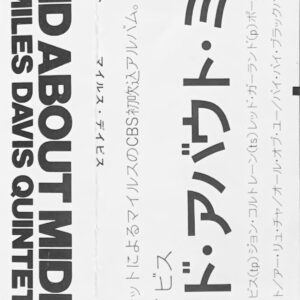 ト/ア・リュ・チャ/オール・オブ・ユー/バイ・バイ・ブラック
ビス(tp)ジョン・コルトレーン(ts)レッド・ガーランド(p)ポー
ド・アバウト・ミ
ビス
ットによるマイルスのCBS初吹込アルバム。
マイルス・デイビス
ND ABOUT MID
MILES DAVIS QUINTET